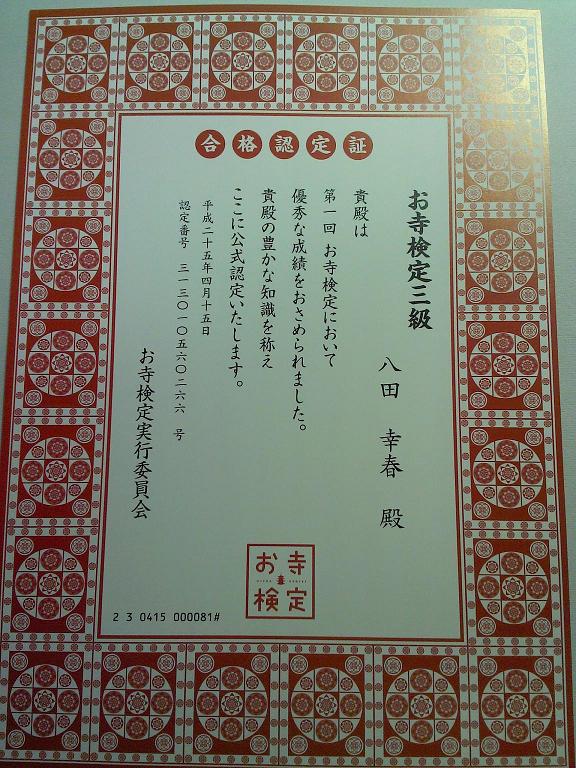 合格認定証
お寺検定三級
八田 幸春 殿
貴殿は
第一回 お寺検定において
優秀な成績をおさめられました。
貴殿の豊かな知識を称え
ここに公式認定いたします。
平成二十五年四月十五日
認定番号 三一三〇一〇五六〇二六六 号
お寺検定実行委員会
お寺
検定
2 3 0415 000081#